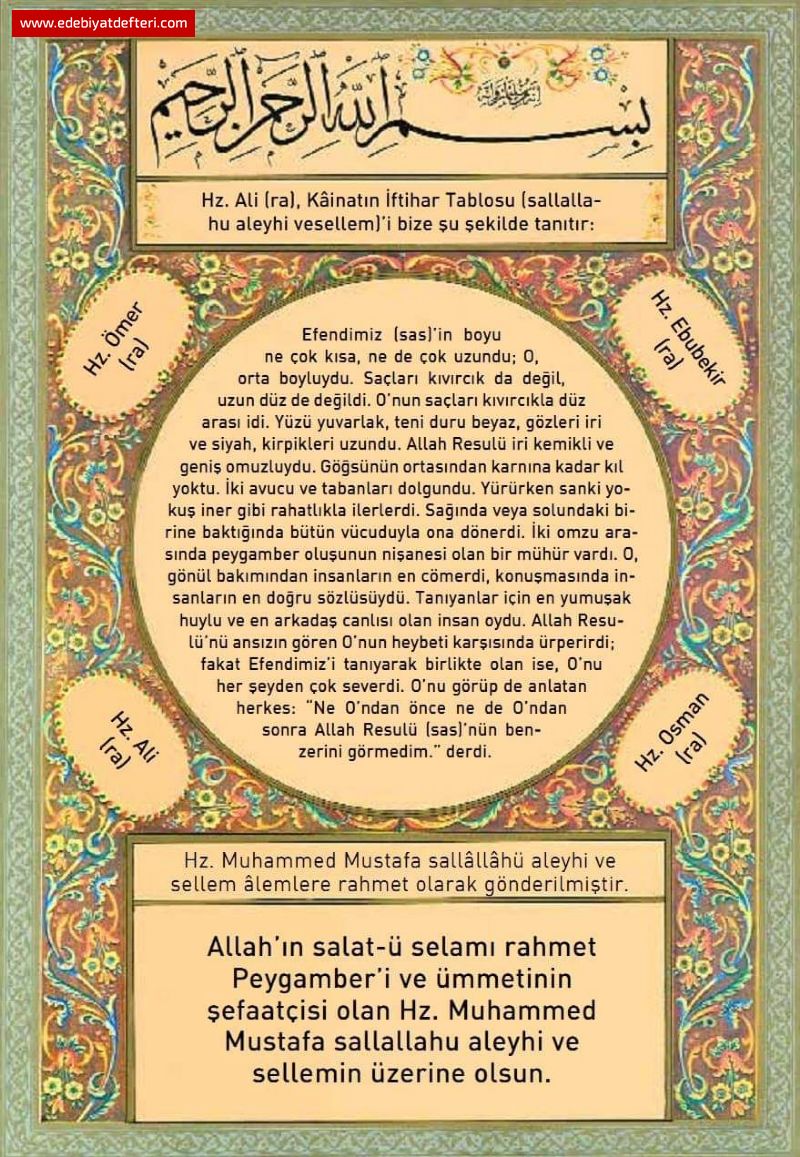 www.edebiyatdefteri.com
بسم الله الرحمن الرحيم
Hz. Ali (ra), Kâinatın İftihar Tablosu (sallalla-
hu aleyhi vesellem)'i bize şu şekilde tanıtır:
Hz. Ömer
(ra)
Hz. Ebubekir
(ra)
Efendimiz (sas)'in boyu
ne çok kısa, ne de çok uzundu; O,
orta boyluydu. Saçları kıvırcık da değil,
uzun düz de değildi. O'nun saçları kıvırcıkla düz
arası idi. Yüzü yuvarlak, teni duru beyaz, gözleri iri
ve siyah, kirpikleri uzundu. Allah Resulü iri kemikli ve
geniş omuzluydu. Göğsünün ortasından karnına kadar kıl
yoktu. İki avucu ve tabanları dolgundu. Yürürken sanki yo-
kuş iner gibi rahatlıkla ilerlerdi. Sağında veya solundaki bi-
rine baktığında bütün vücuduyla ona dönerdi. İki omzu ara-
sında peygamber oluşunun nişanesi olan bir mühür vardı. O,
gönül bakımından insanların en cömerdi, konuşmasında in-
sanların en doğru sözlüsüydü. Tanıyanlar için en yumuşak
huylu ve en arkadaş canlısı olan insan oydu. Allah Resu-
lü'nü ansızın gören O'nun heybeti karşısında ürperirdi;
fakat Efendimiz'i tanıyarak birlikte olan ise, O'nu
her şeyden çok severdi. O'nu görüp de anlatan
herkes: “Ne O'ndan önce ne de O'ndan
sonra Allah Resulü (sas)'nün ben-
zerini görmedim.” derdi.
Hz. Ali
(ra)
Hz. Osman
(ra)
Hz. Muhammed Mustafa sallâllâhü aleyhi ve
sellem âlemlere rahmet olarak gönderilmiştir.
Allah'ın salat-ü selamı rahmet
Peygamber'i ve ümmetinin
şefaatçisi olan Hz. Muhammed
Mustafa sallallahu aleyhi ve
sellemin üzerine olsun.